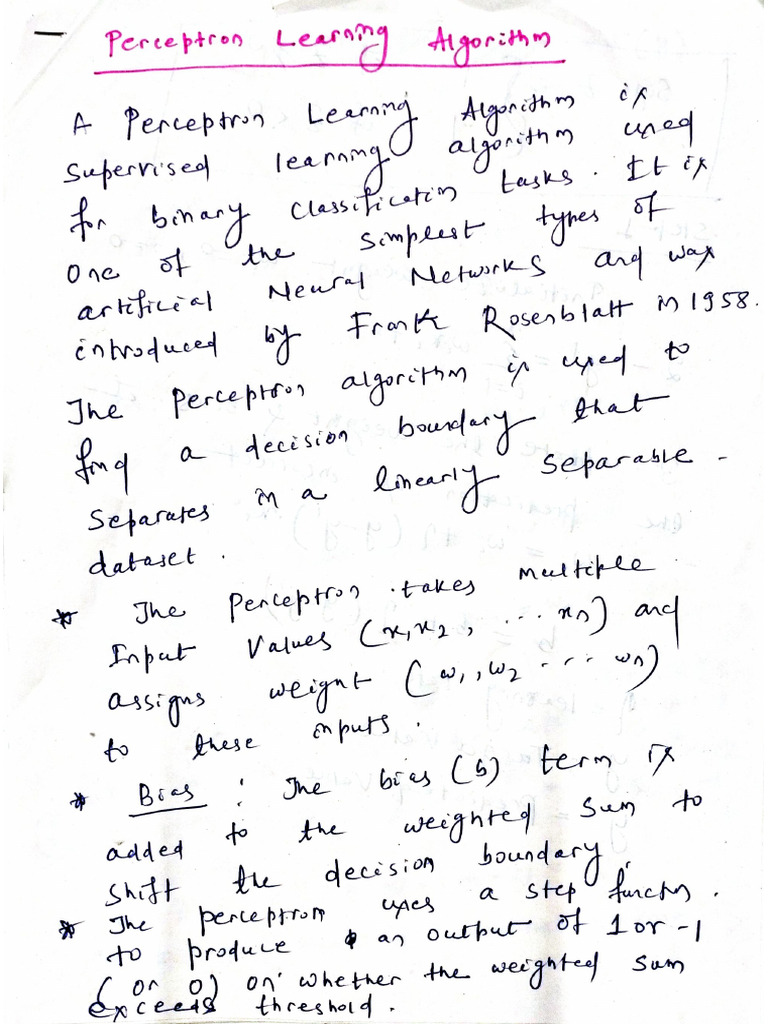 Perceptron Learning Algorithm
A Perceptron Learning Algorithm is
Supervised learning algorithm used
for binary classification tasks. It is
One of the simplest types of
artificial Neural Networks and was
introduced by Frank Rosenblatt in 1958.
The Perceptron algorithm is used to
find a decision boundary that
Separates in a linearly separable
dataset.
* The Perceptron takes multiple
Input Values (x1 x2, ... xn) and
assigns weight (w1, w2 ... wn)
to these inputs.
* Bias : The bias (b) term is
added to the weighted sum to
shift the decision boundary.
* The perceptron uses a step functn.
to produce an output of 1 or -1
(or 0) on whether the weighted sum
exceeds threshold.